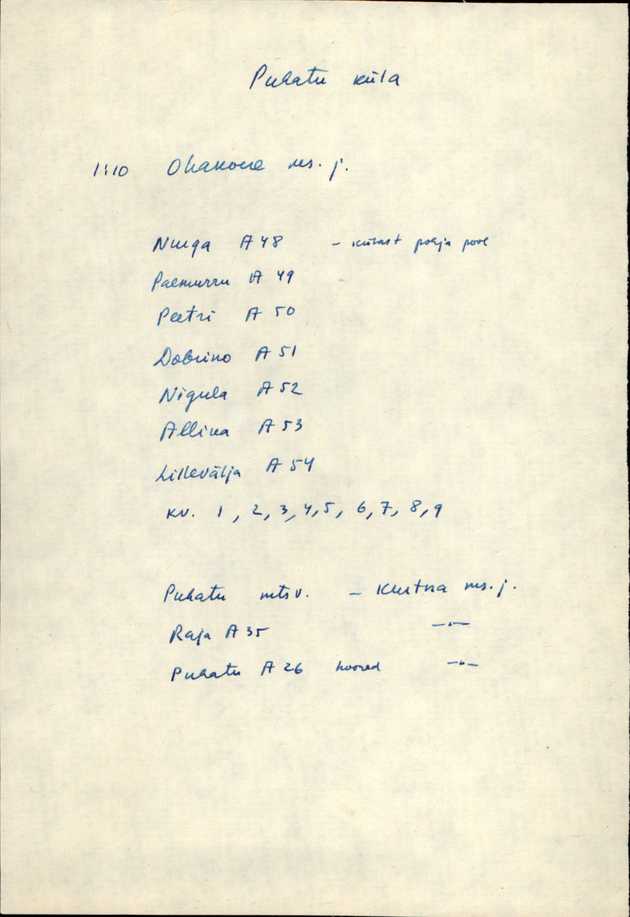 Puhatu küla
1:10 Ohakvere ms. j.
Nurga A 48 – külast põhja pool
Paemurru A 49
Peetri A 50
Dobrino A 51
Nigula A 52
Allika A 53
Lillevälja A 54
kv. 1, 2, 3, 4, 5, 6, 7, 8, 9
Puhatu mtsv. – Kurtna ms. j.
Raja A 35 –"–
Puhatu A 26 hooned –"–